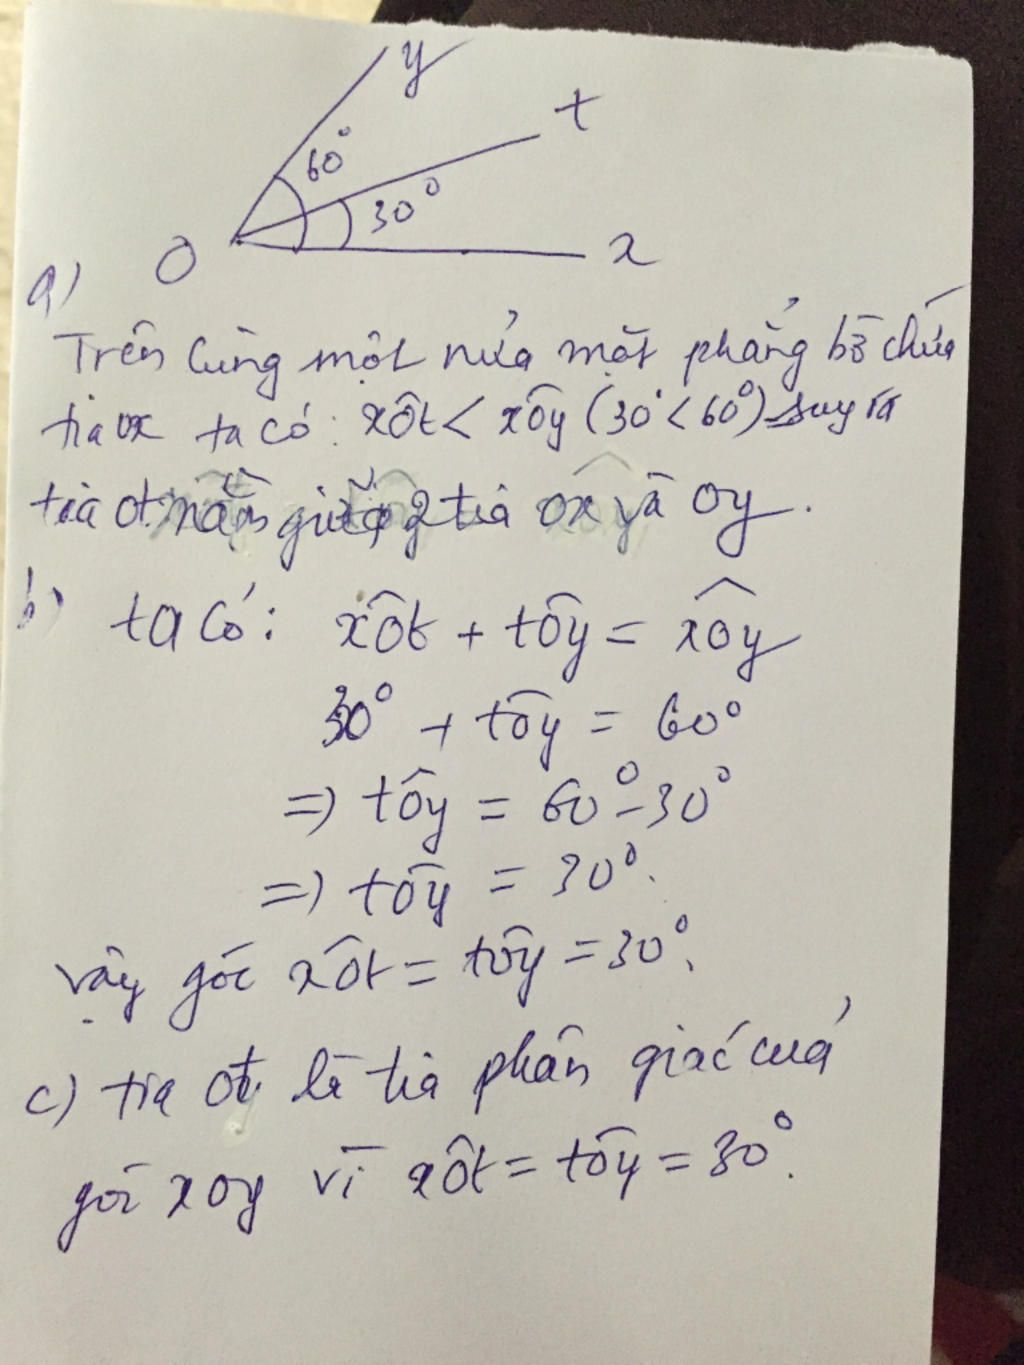 y
t
60°
30°
O
x
a)
Trên cùng một nửa mặt phẳng bờ chứa
tia ox ta có: xÔt < xÔy (30° < 60°) suy ra
tia ot nằm giữa 2 tia ox và oy.
b) ta có: xÔt + tÔy = xÔy
30° + tÔy = 60°
=> tÔy = 60° - 30°
=> tÔy = 30°.
vậy góc xÔt = tÔy = 30°.
c) tia ot là tia phân giác của
góc xoy vì xÔt = tÔy = 30°.